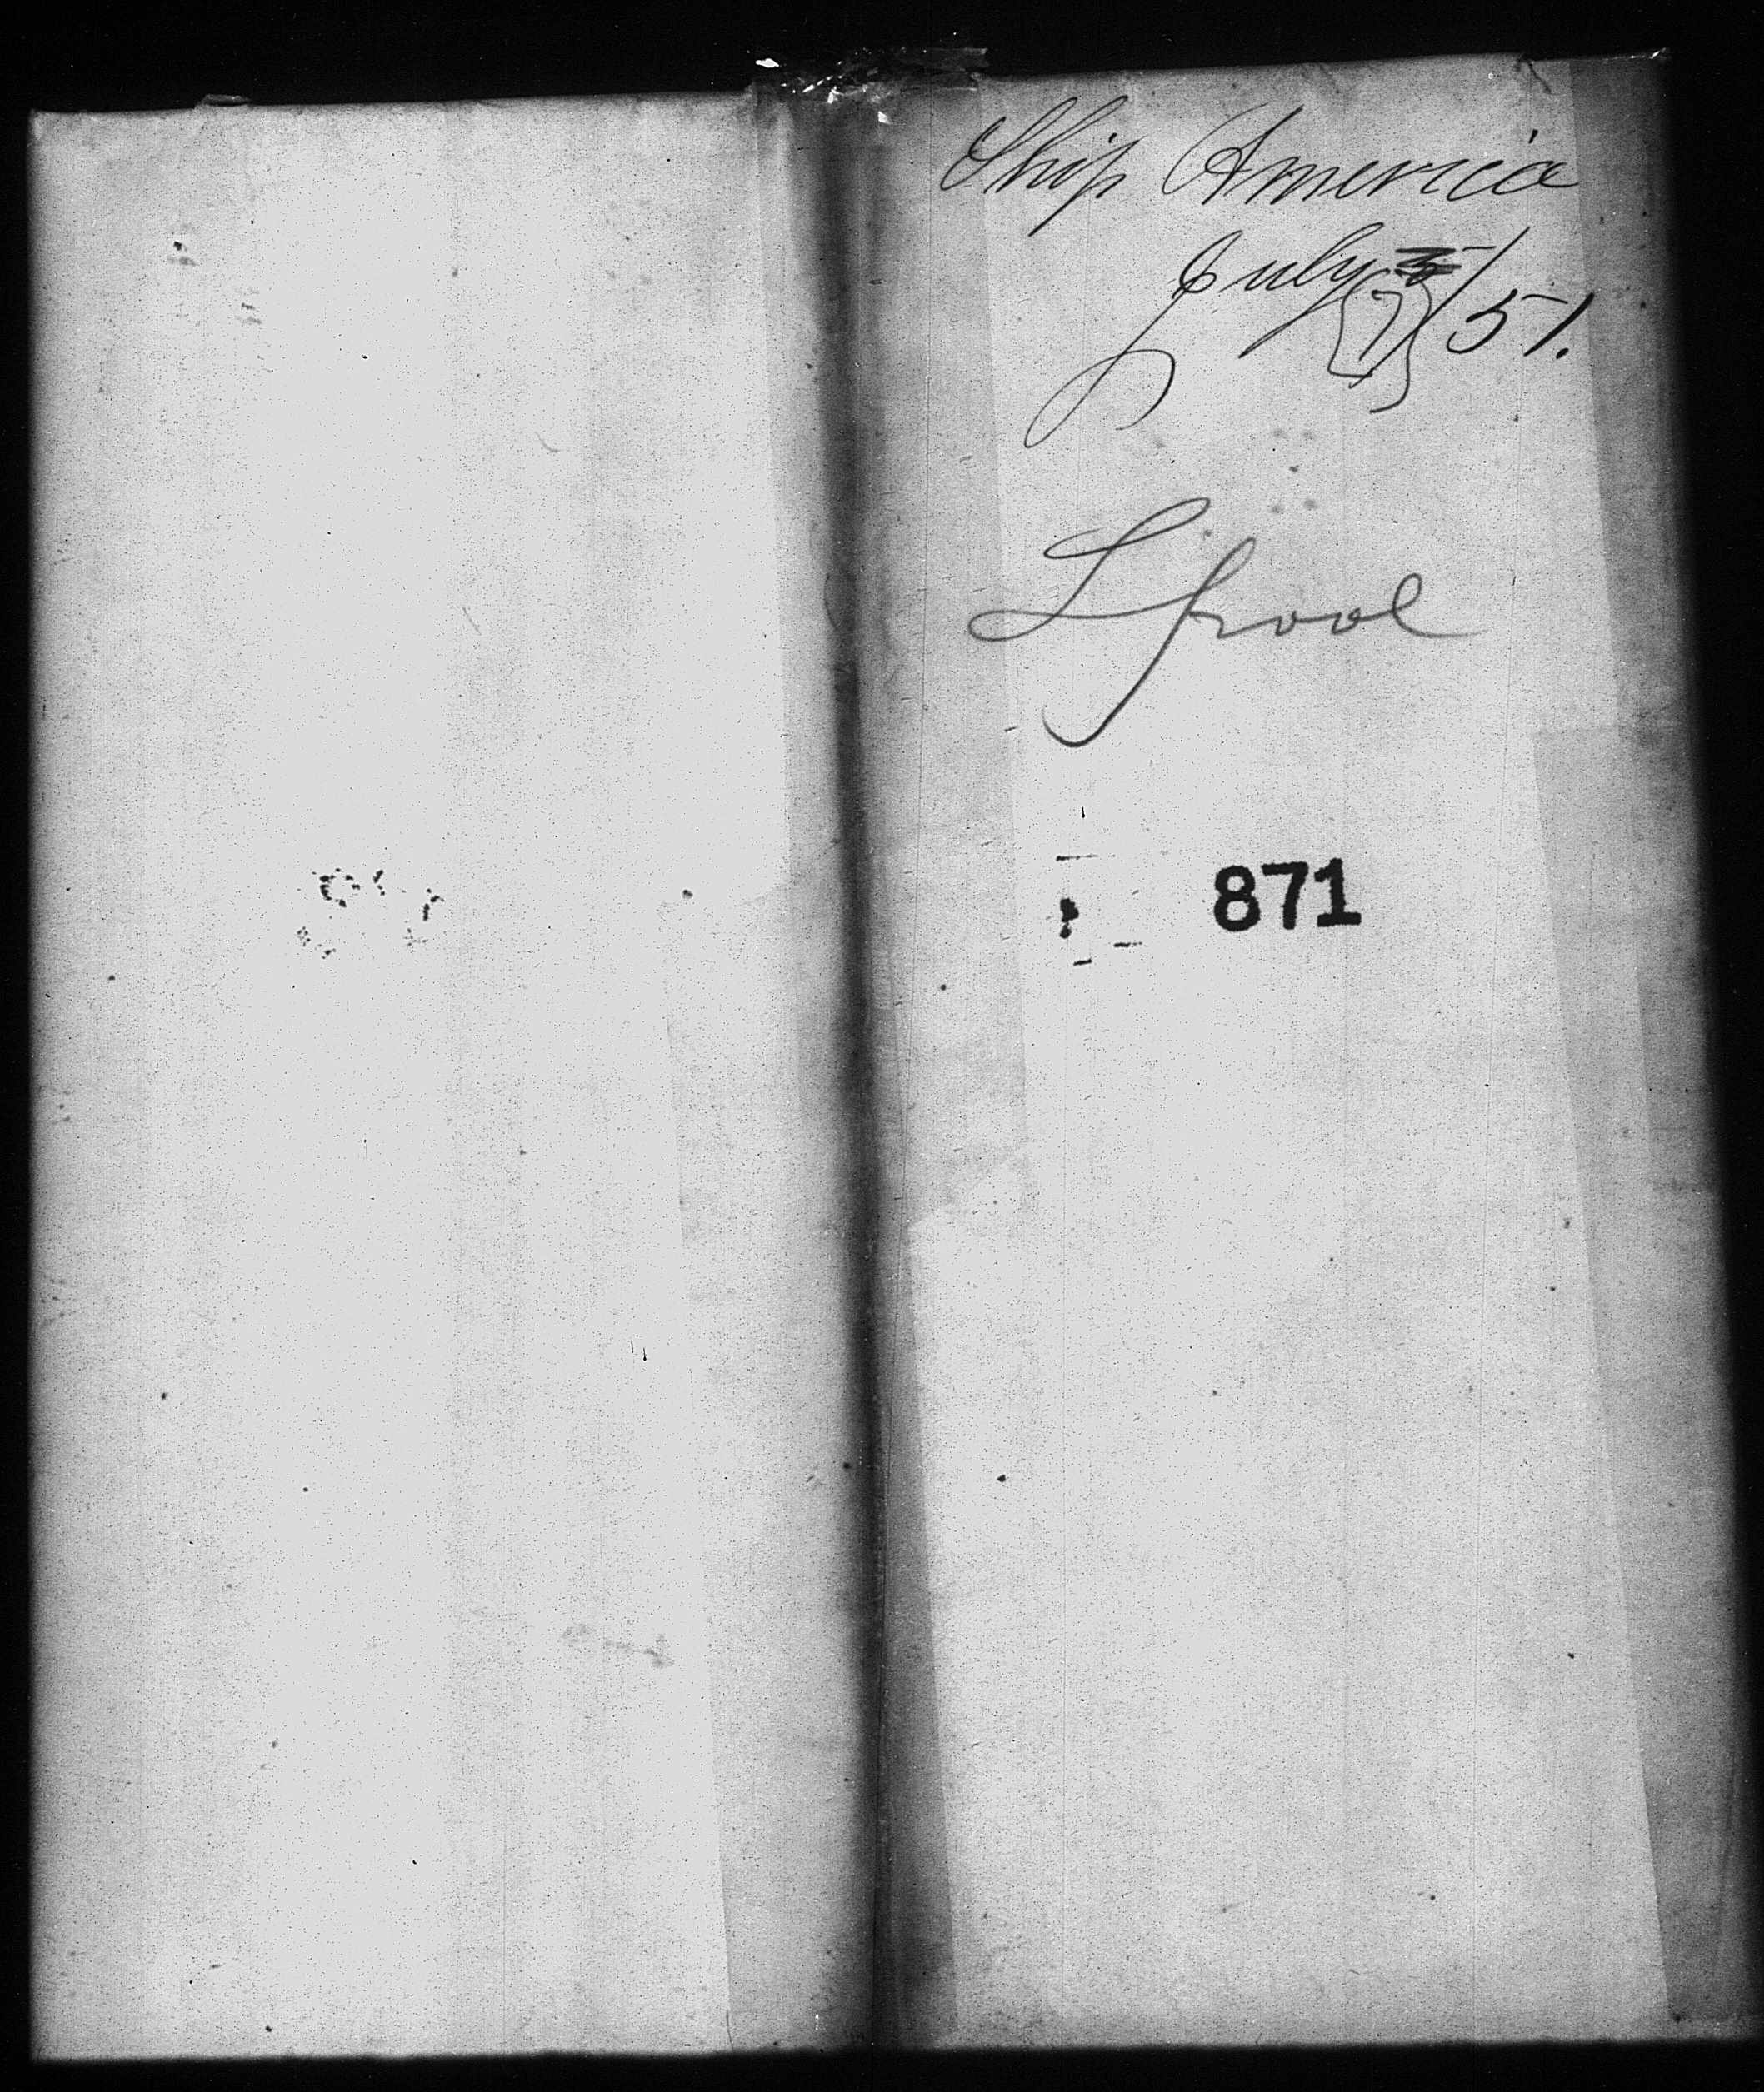 Ship America
July 7/51.
Lpool
871